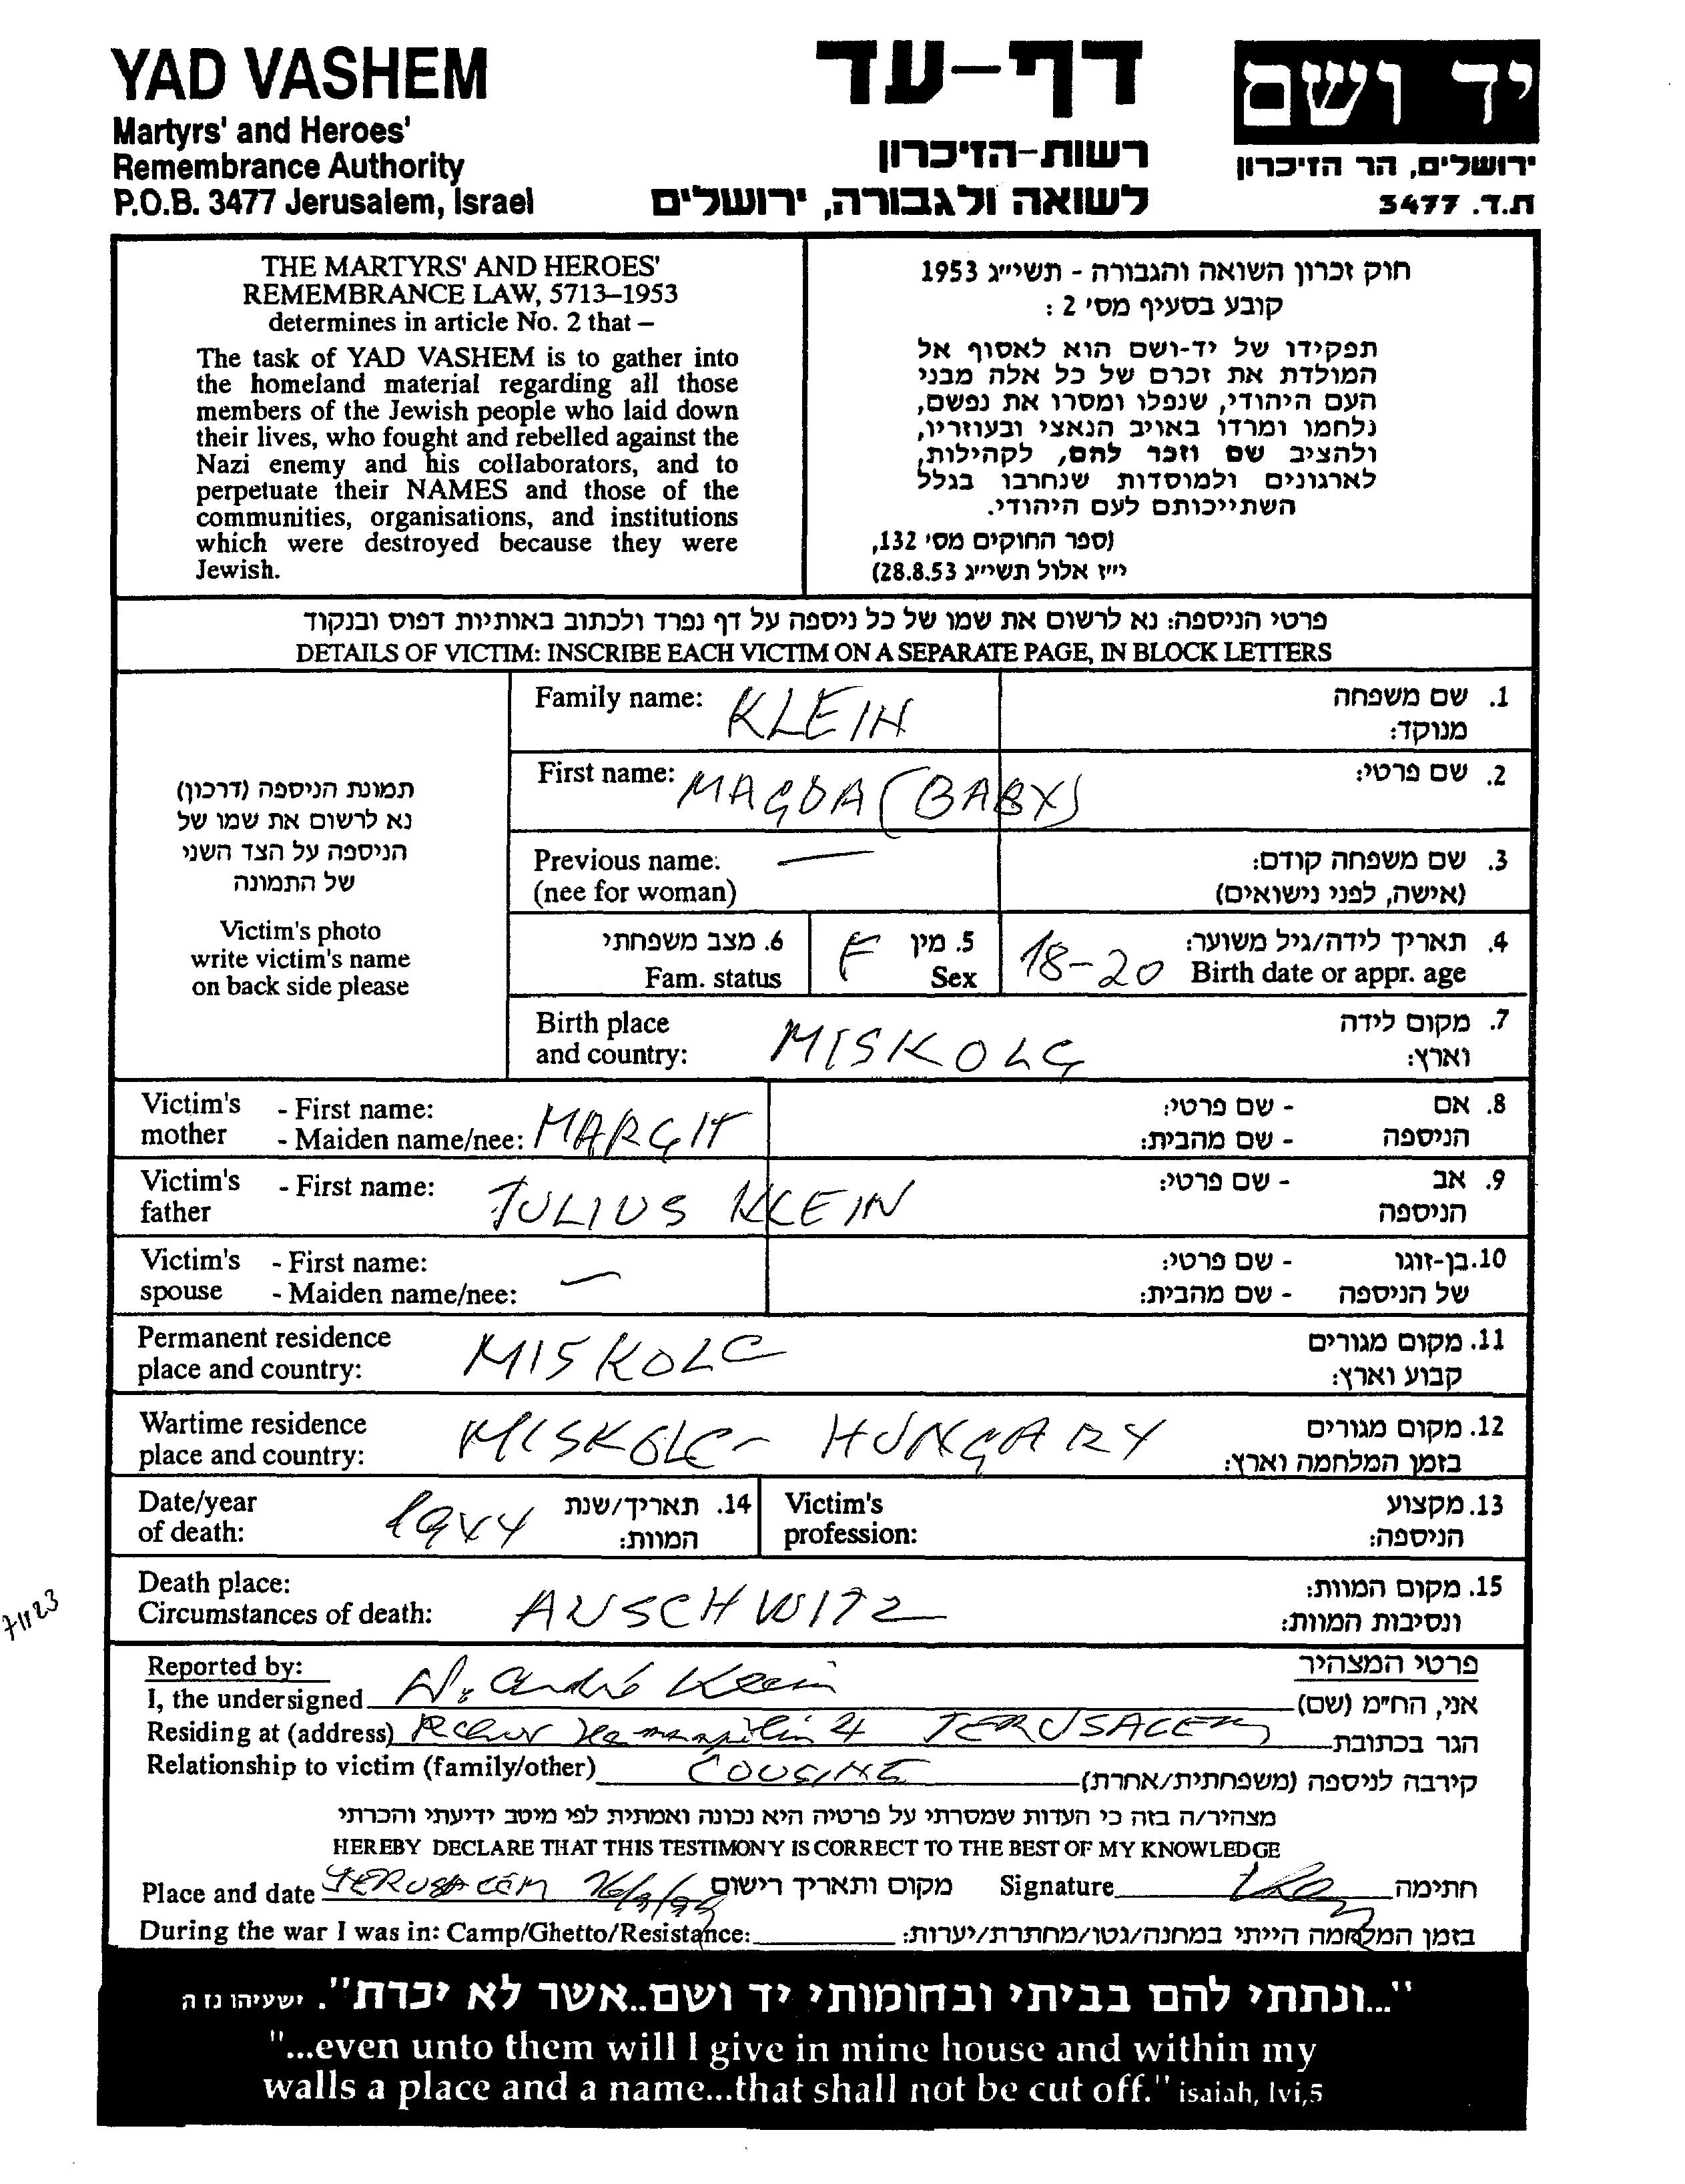 YAD VASHEM
Martyrs' and Heroes'
Remembrance Authority
P.O.B. 3477 Jerusalem, Israel
דף-עד
רשות-הזיכרון
לשואה ולגבורה, ירושלים
יד ושם
ירושלים, הר הזיכרון
ת.ד. 3477
THE MARTYRS' AND HEROES'
REMEMBRANCE LAW, 5713–1953
determines in article No. 2 that –
The task of YAD VASHEM is to gather into
the homeland material regarding all those
members of the Jewish people who laid down
their lives, who fought and rebelled against the
Nazi enemy and his collaborators, and to
perpetuate their NAMES and those of the
communities, organisations, and institutions
which were destroyed because they were
Jewish.
חוק זכרון השואה והגבורה - תשי״ג 1953
קובע בסעיף מס' 2 :
תפקידו של יד-ושם הוא לאסוף אל
המולדת את זכרם של כל אלה מבני
העם היהודי, שנפלו ומסרו את נפשם,
נלחמו ומרדו באויב הנאצי ובעוזריו,
ולהציב שם וזכר להם, לקהילות,
לארגונים ולמוסדות שנחרבו בגלל
השתייכותם לעם היהודי.
(ספר החוקים מס' 132,
י״ז אלול תשי״ג 28.8.53)
פרטי הניספה: נא לרשום את שמו של כל ניספה על דף נפרד ולכתוב באותיות דפוס ובנקוד
DETAILS OF VICTIM: INSCRIBE EACH VICTIM ON A SEPARATE PAGE, IN BLOCK LETTERS
תמונת הניספה (דרכון)
נא לרשום את שמו של
הניספה על הצד השני
של התמונה
Victim's photo
write victim's name
on back side please
Family name: KLEIN 1. שם משפחה
מנוקד:
First name: MAGDA (BABY) 2. שם פרטי:
Previous name: — 3. שם משפחה קודם:
(nee for woman) (אישה, לפני נישואים)
6. מצב משפחתי 5. מין 4. תאריך לידה/גיל משוער:
Fam. status F Sex 18-20 Birth date or appr. age
Birth place MISKOLC 7. מקום לידה
and country: וארץ:
Victim's - First name: - שם פרטי: 8. אם
mother - Maiden name/nee: MARGIT - שם מהבית: הניספה
Victim's - First name: JULIUS KLEIN - שם פרטי: 9. אב
father הניספה
Victim's - First name: - שם פרטי: 10. בן-זוגו
spouse - Maiden name/nee: — - שם מהבית: של הניספה
Permanent residence MISKOLC 11. מקום מגורים
place and country: קבוע וארץ:
Wartime residence MISKOLC - HUNGARY 12. מקום מגורים
place and country: בזמן המלחמה וארץ:
Date/year 1944 14. תאריך/שנת Victim's 13. מקצוע
of death: המוות: profession: הניספה:
Death place: 15. מקום המוות:
Circumstances of death: AUSCHWITZ ונסיבות המוות:
71123
Reported by: פרטי המצהיר
I, the undersigned André Klein אני, הח״מ (שם)
Residing at (address) 4 JERUSALEM הגר בכתובת
Relationship to victim (family/other) COUSINE קירבה לניספה (משפחתית/אחרת)
מצהיר/ה בזה כי העדות שמסרתי על פרטיה היא נכונה ואמתית לפי מיטב ידיעתי והכרתי
HEREBY DECLARE THAT THIS TESTIMONY IS CORRECT TO THE BEST OF MY KNOWLEDGE
Place and date JERUSALEM מקום ותאריך רישום Signature חתימה
During the war I was in: Camp/Ghetto/Resistance: בזמן המלחמה הייתי במחנה/גטו/מחתרת/יערות:
"...ונתתי להם בביתי ובחומותי יד ושם..אשר לא יכרת". ישעיהו נז ה
"...even unto them will I give in mine house and within my
walls a place and a name...that shall not be cut off." isaiah, lvi,5